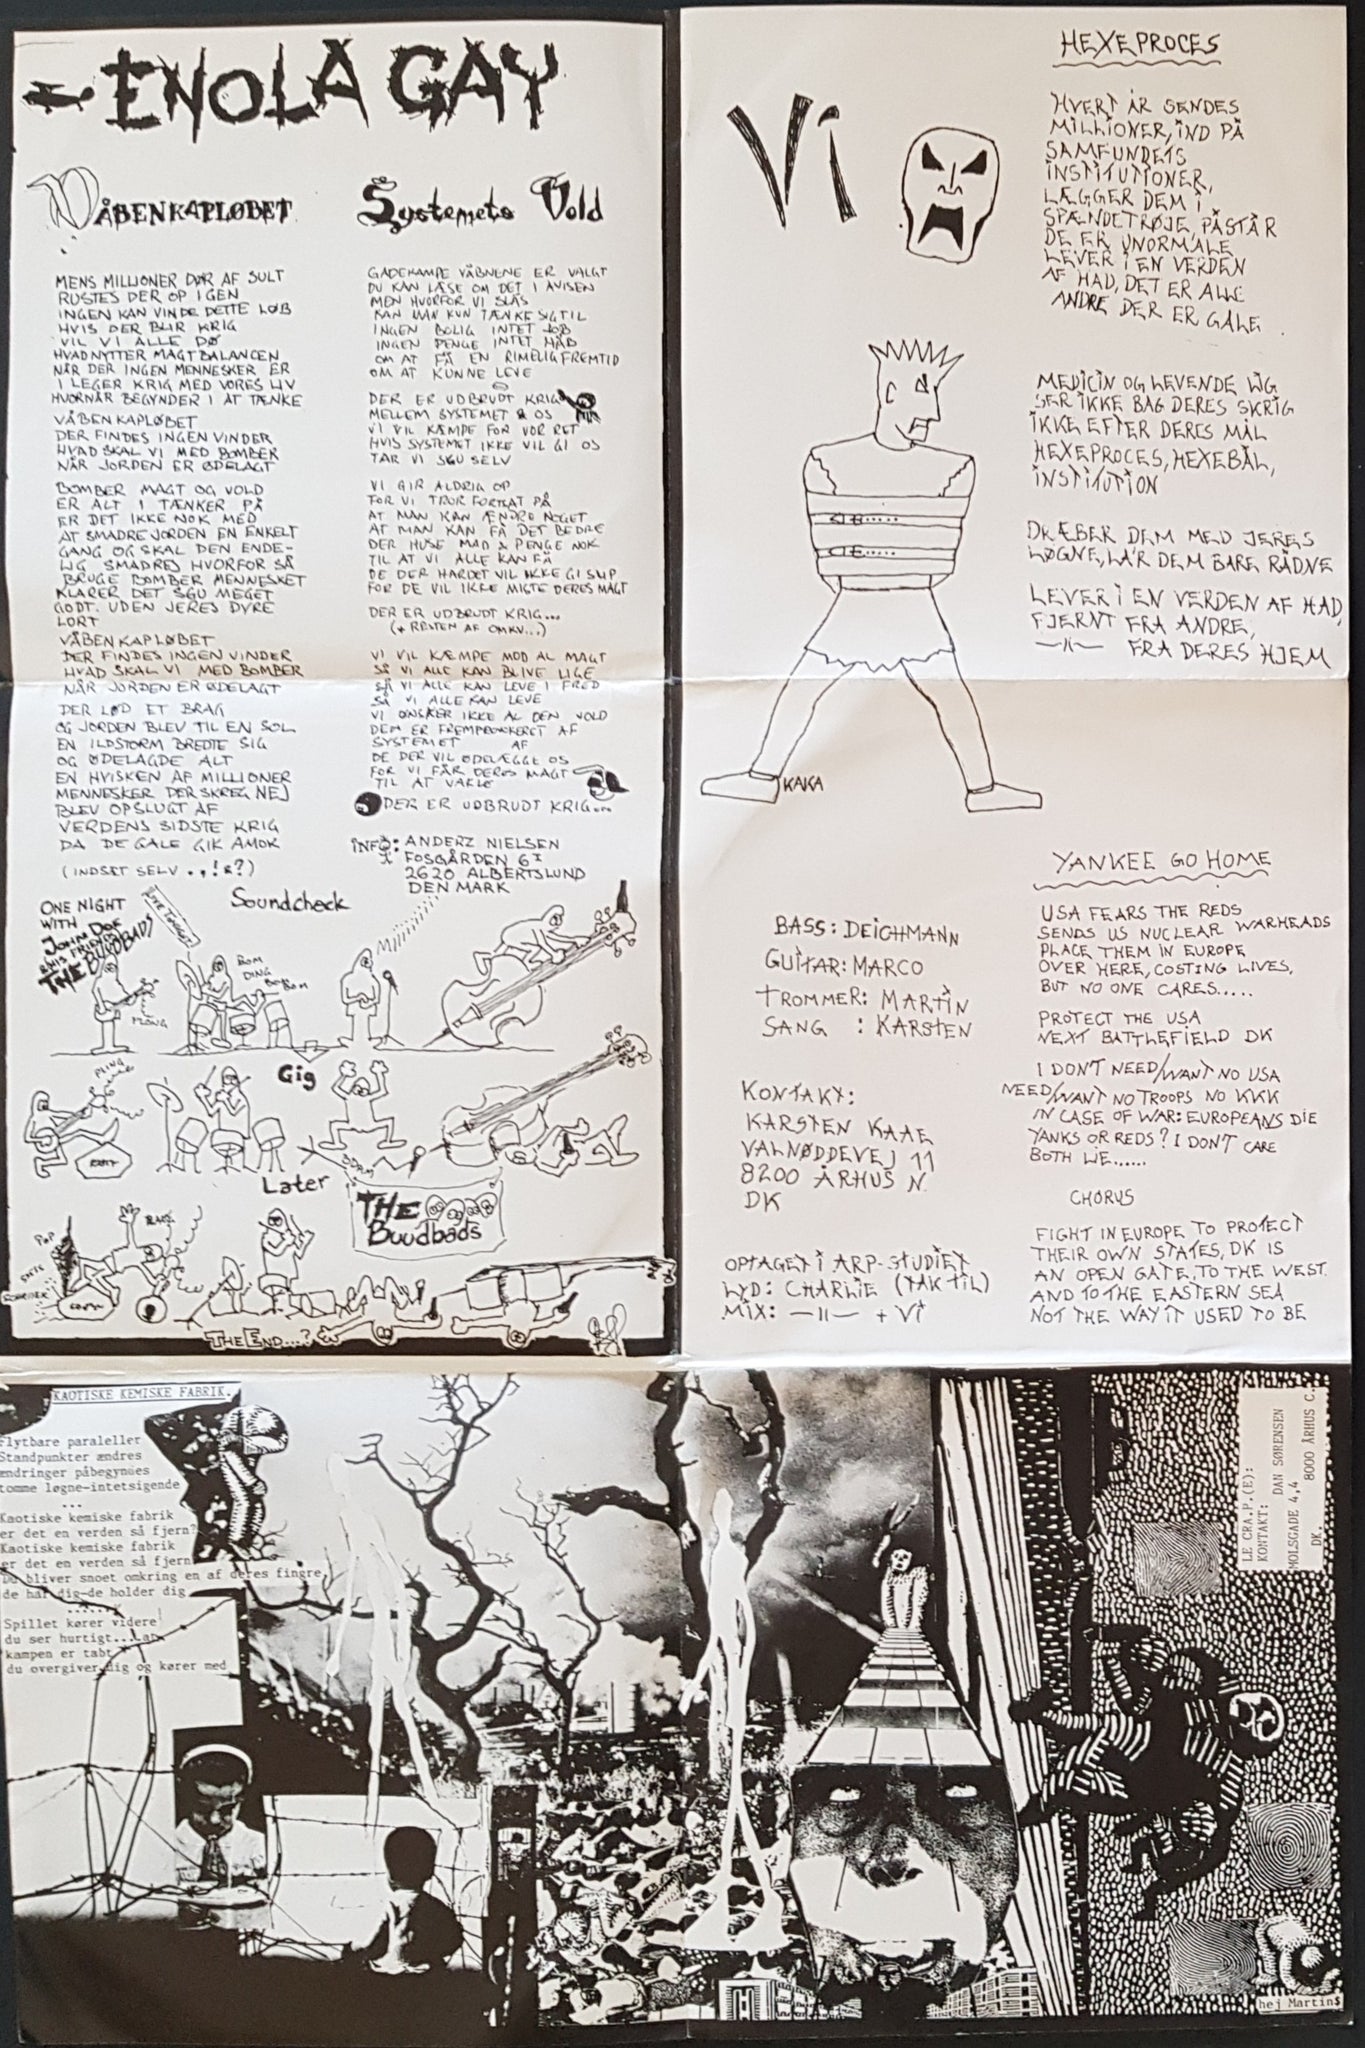 ENOLA GAY
VÅBENKAPLØBET
MENS MILLIONER DØR AF SULT
RUSTES DER OP IGEN
INGEN KAN VINDE DETTE LØB
HVIS DER BLIR KRIG
VIL VI ALLE DØ
HVAD NYTTER MAGTBALANCEN
NÅR DER INGEN MENNESKER ER
I LEGER KRIG MED VORES LIV
HVORNÅR BEGYNDER I AT TÆNKE
VÅBENKAPLØBET
DER FINDES INGEN VINDER
HVAD SKAL VI MED BOMBER
NÅR JORDEN ER ØDELAGT
BOMBER MAGT OG VOLD
ER ALT I TÆNKER PÅ
ER DET IKKE NOK MED
AT SMADRE JORDEN EN ENKELT
GANG OG SKAL DEN ENDE-
LIG SMADRES HVORFOR SÅ
BRUGE BOMBER MENNESKET
KLARER DET SGU MEGET
GODT. UDEN JERES DYRE
LORT
VÅBENKAPLØBET
DER FINDES INGEN VINDER
HVAD SKAL VI MED BOMBER
NÅR JORDEN ER ØDELAGT
DER LØD ET BRAG
OG JORDEN BLEV TIL EN SOL
EN ILDSTORM BREDTE SIG
OG ØDELAGDE ALT
EN HVISKEN AF MILLIONER
MENNESKER DER SKREG NEJ
BLEV OPSLUGT AF
VERDENS SIDSTE KRIG
DA DE GALE GIK AMOK
(INDSÆT SELV .,!&?)
Systemets Vold
GADEKAMPE VÅBNENE ER VALGT
DU KAN LÆSE OM DET I AVISEN
MEN HVORFOR VI SLÅS
KAN MAN KUN TÆNKE SIG TIL
INGEN BOLIG INTET JOB
INGEN PENGE INTET HÅB
OM AT FÅ EN RIMELIG FREMTID
OM AT KUNNE LEVE
DER ER UDBRUDT KRIG
MELLEM SYSTEMET & OS
VI VIL KÆMPE FOR VOR RET
HVIS SYSTEMET IKKE VIL GI OS
TAR VI SGU SELV
VI GIR ALDRIG OP
FOR VI TROR FORTSAT PÅ
AT MAN KAN ÆNDRE NOGET
AT MAN KAN FÅ DET BEDRE
DER HUSE MAD & PENGE NOK
TIL AT VI ALLE KAN FÅ
DE DER HAR DET VIL IKKE GI SLIP
FOR DE VIL IKKE MISTE DERES MAGT
DER ER UDBRUDT KRIG...
(+ RESTEN AF OMKV...)
VI VIL KÆMPE MOD AL MAGT
SÅ VI ALLE KAN BLIVE LIGE
SÅ VI ALLE KAN LEVE I FRED
SÅ VI ALLE KAN LEVE
VI ØNSKER IKKE AL DEN VOLD
DEM ER FREMPROVOKERET AF
SYSTEMET AF
DE DER VIL ØDELÆGGE OS
FOR VI FÅR DERES MAGT
TIL AT VAKLE
DER ER UDBRUDT KRIG...
INFO: ANDERZ NIELSEN
FOSGÅRDEN 6
2620 ALBERTSLUND
DENMARK
ONE NIGHT
WITH
JOHN DOE
& HIS FRIENDS
THE BUUDBADS
Soundcheck
BOM
DING
BOM
PLONG
Gig
PLING
EXIT
Later
THE
Buudbads
POP
THE END...?
Vi
HEXEPROCES
HVERT ÅR SENDES
MILLIONER, IND PÅ
SAMFUNDETS
INSTITUTIONER,
LÆGGER DEM I
SPÆNDETRØJE, PÅSTÅR
DE ER UNORMALE
LEVER I EN VERDEN
AF HAD, DET ER ALLE
ANDRE DER ER GALE.
MEDICIN OG LEVENDE LIG
SER IKKE BAG DERES SKRIG
IKKE EFTER DERES MÅL
HEXEPROCES, HEXEBÅL,
INSTITUTION
DRÆBER DEM MED JERES
LØGNE, LAR DEM BARE RÅDNE
LEVER I EN VERDEN AF HAD,
FJERNT FRA ANDRE,
—II— FRA DERES HJEM
KAKA
BASS: DEICHMANN
GUITAR: MARCO
TROMMER: MARTIN
SANG : KARSTEN
KONTAKT:
KARSTEN KAAE
VALNØDDEVEJ 11
8200 ÅRHUS N.
DK
OPTAGET I ARP-STUDIET
LYD: CHARLIE (TAK TIL)
MIX: —II— + VI
YANKEE GO HOME
USA FEARS THE REDS
SENDS US NUCLEAR WARHEADS
PLACE THEM IN EUROPE
OVER HERE, COSTING LIVES,
BUT NO ONE CARES.....
PROTECT THE USA
NEXT BATTLEFIELD DK
I DON'T NEED/WANT NO USA
NEED/WANT NO TROOPS NO KKK
IN CASE OF WAR: EUROPEANS DIE
YANKS OR REDS? I DON'T CARE
BOTH LIE......
CHORUS
FIGHT IN EUROPE TO PROTECT
THEIR OWN STATES, DK IS
AN OPEN GATE, TO THE WEST.
AND TO THE EASTERN SEA
NOT THE WAY IT USED TO BE
KAOTISKE KEMISKE FABRIK.
Flytbare paraleller
Standpunkter ændres
ændringer påbegynges
tomme løgne-intetsigende
...
Kaotiske kemiske fabrik
er det en verden så fjern?
Kaotiske kemiske fabrik
er det en verden så fjern
Du bliver snoet omkring en af deres fingre
de har dig-de holder dig
.......
Spillet kører videre
du ser hurtigt...at
kampen er tabt
du overgiver dig og kører med
LE CRA.P.(E):
KONTAKT: DAN SØRENSEN
MOLSGADE 4,4
8000 ÅRHUS C.
DK.
hej Martin$